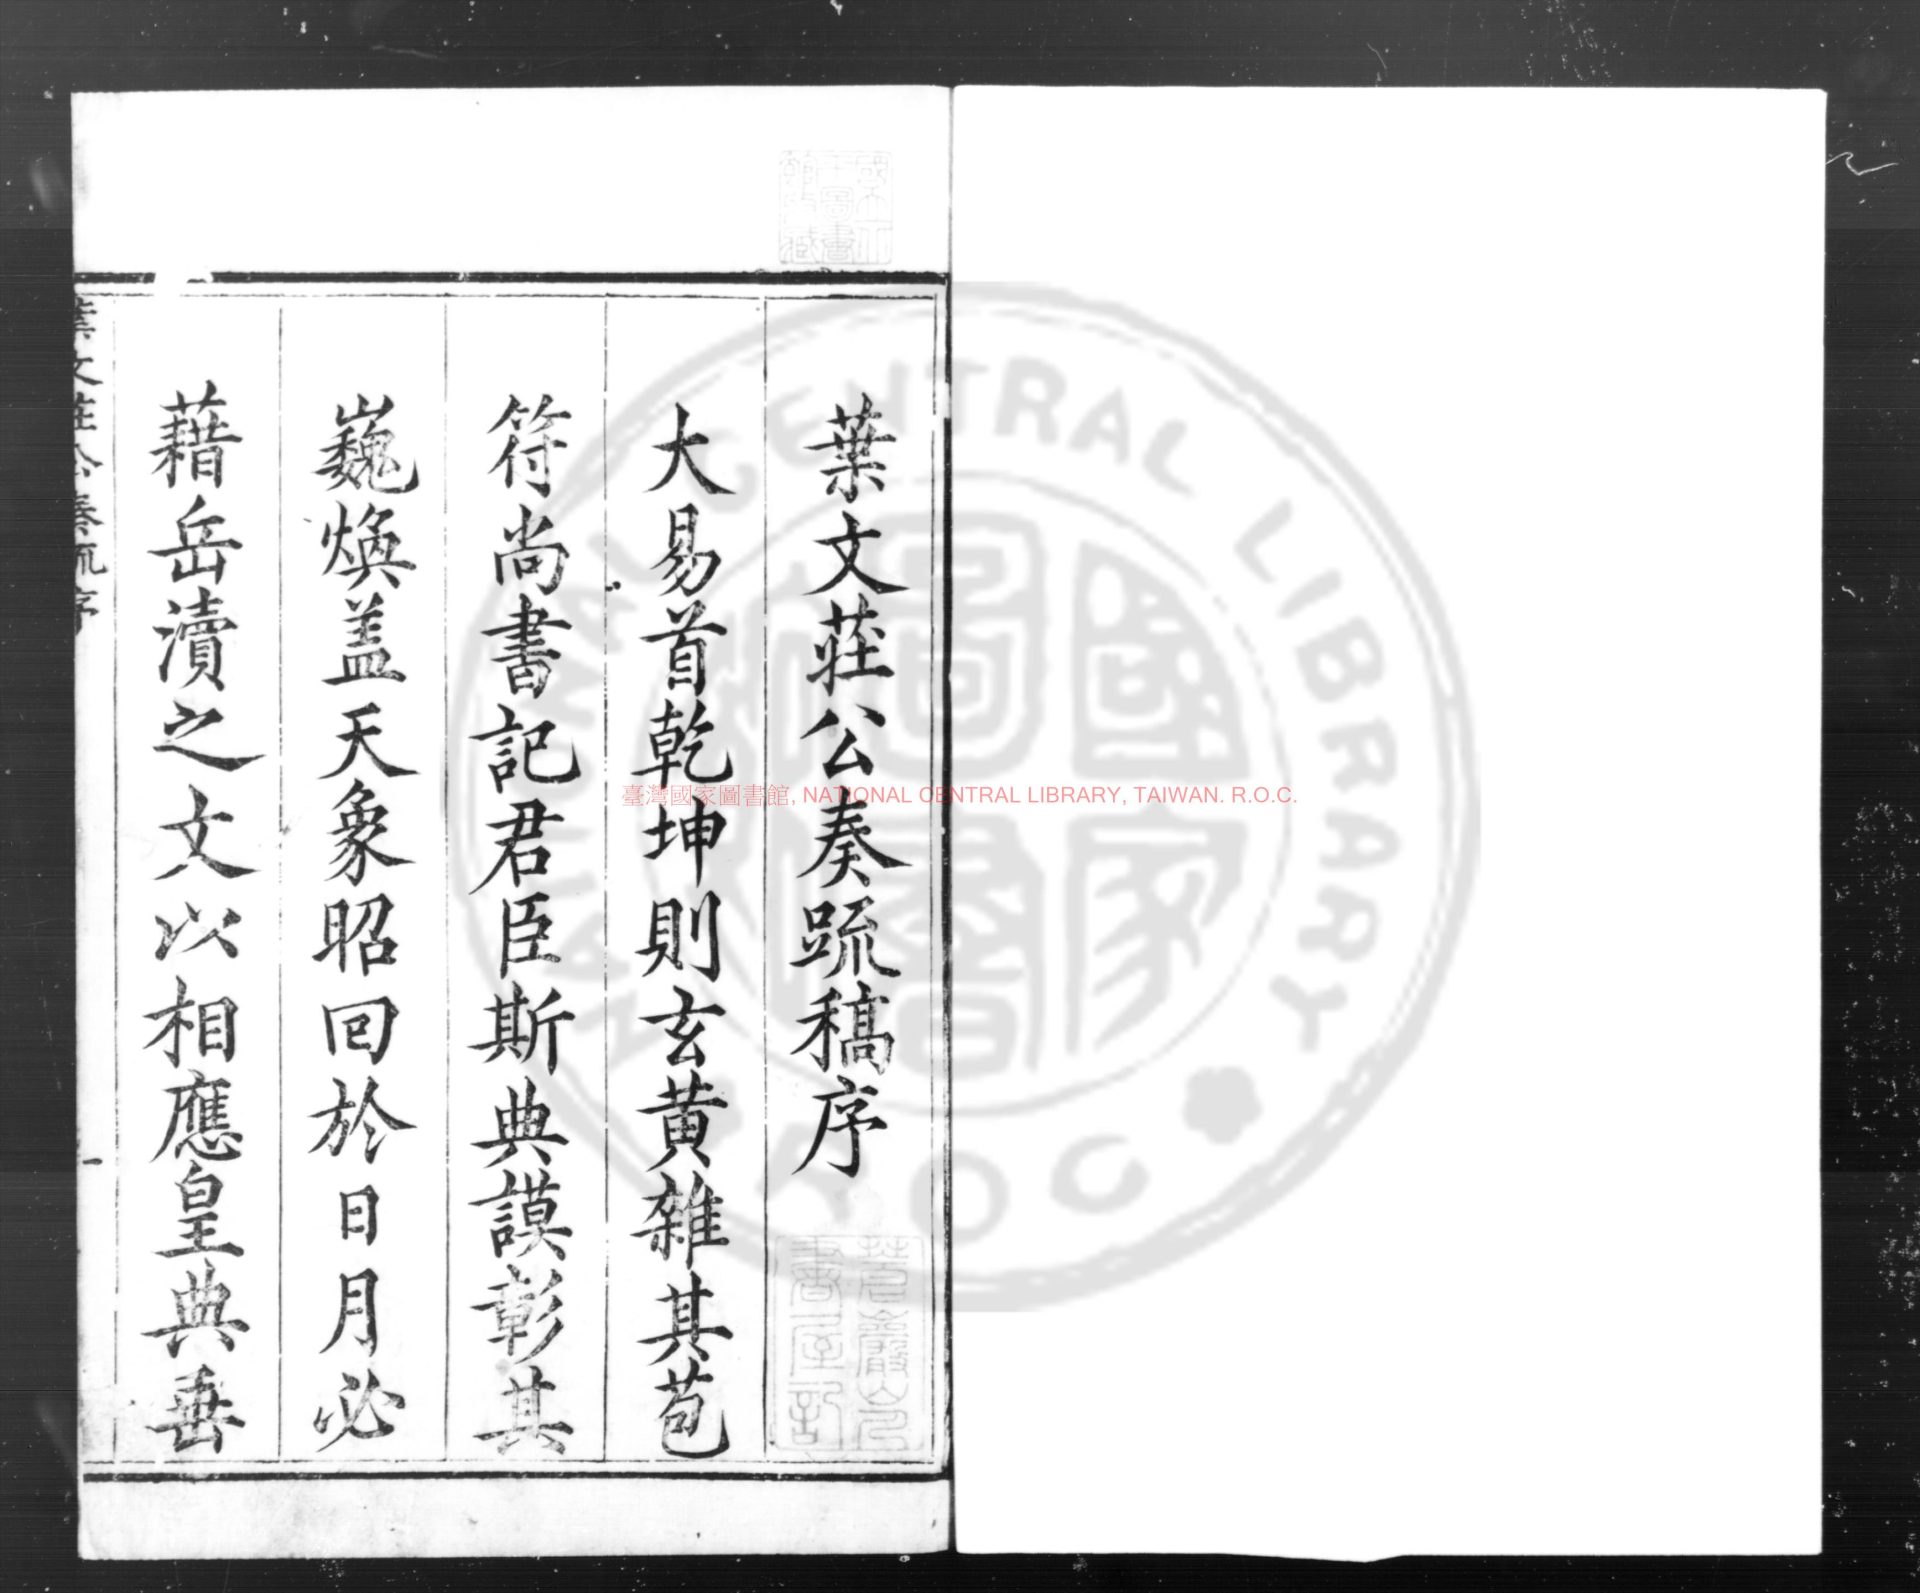 葉文莊公奏疏稿序
大易首乾坤則玄黄雜其苞
符尚書記君臣斯典謨彰其
巍煥盖天象昭回於日月必
藉岳瀆之文以相應皇典垂
葉文莊公奏疏序
一
臺灣國家圖書館, NATIONAL CENTRAL LIBRARY, TAIWAN. R.O.C.
NATIONAL CENTRAL LIBRARY
R.O.C.
國家圖書